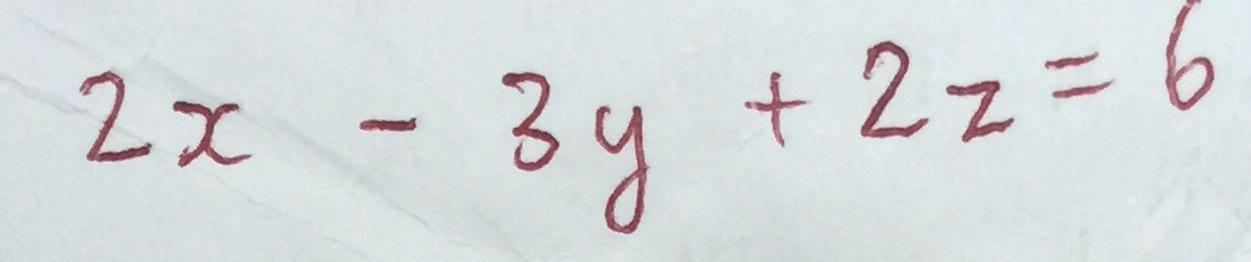 2x - 3y + 2z = 6